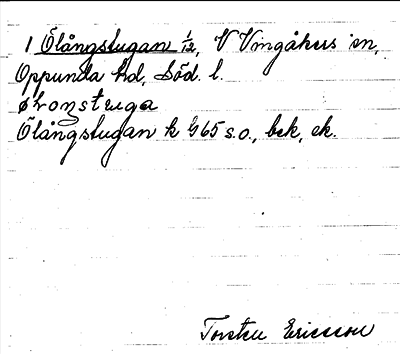 1 Ölångstugan 1/12, V Vingåkers sn,
Oppunda hd, Söd. l.
øLoŋstɛuga
Ölångstugan k G65 s.o., bek, ek.
Torsten Ericsson